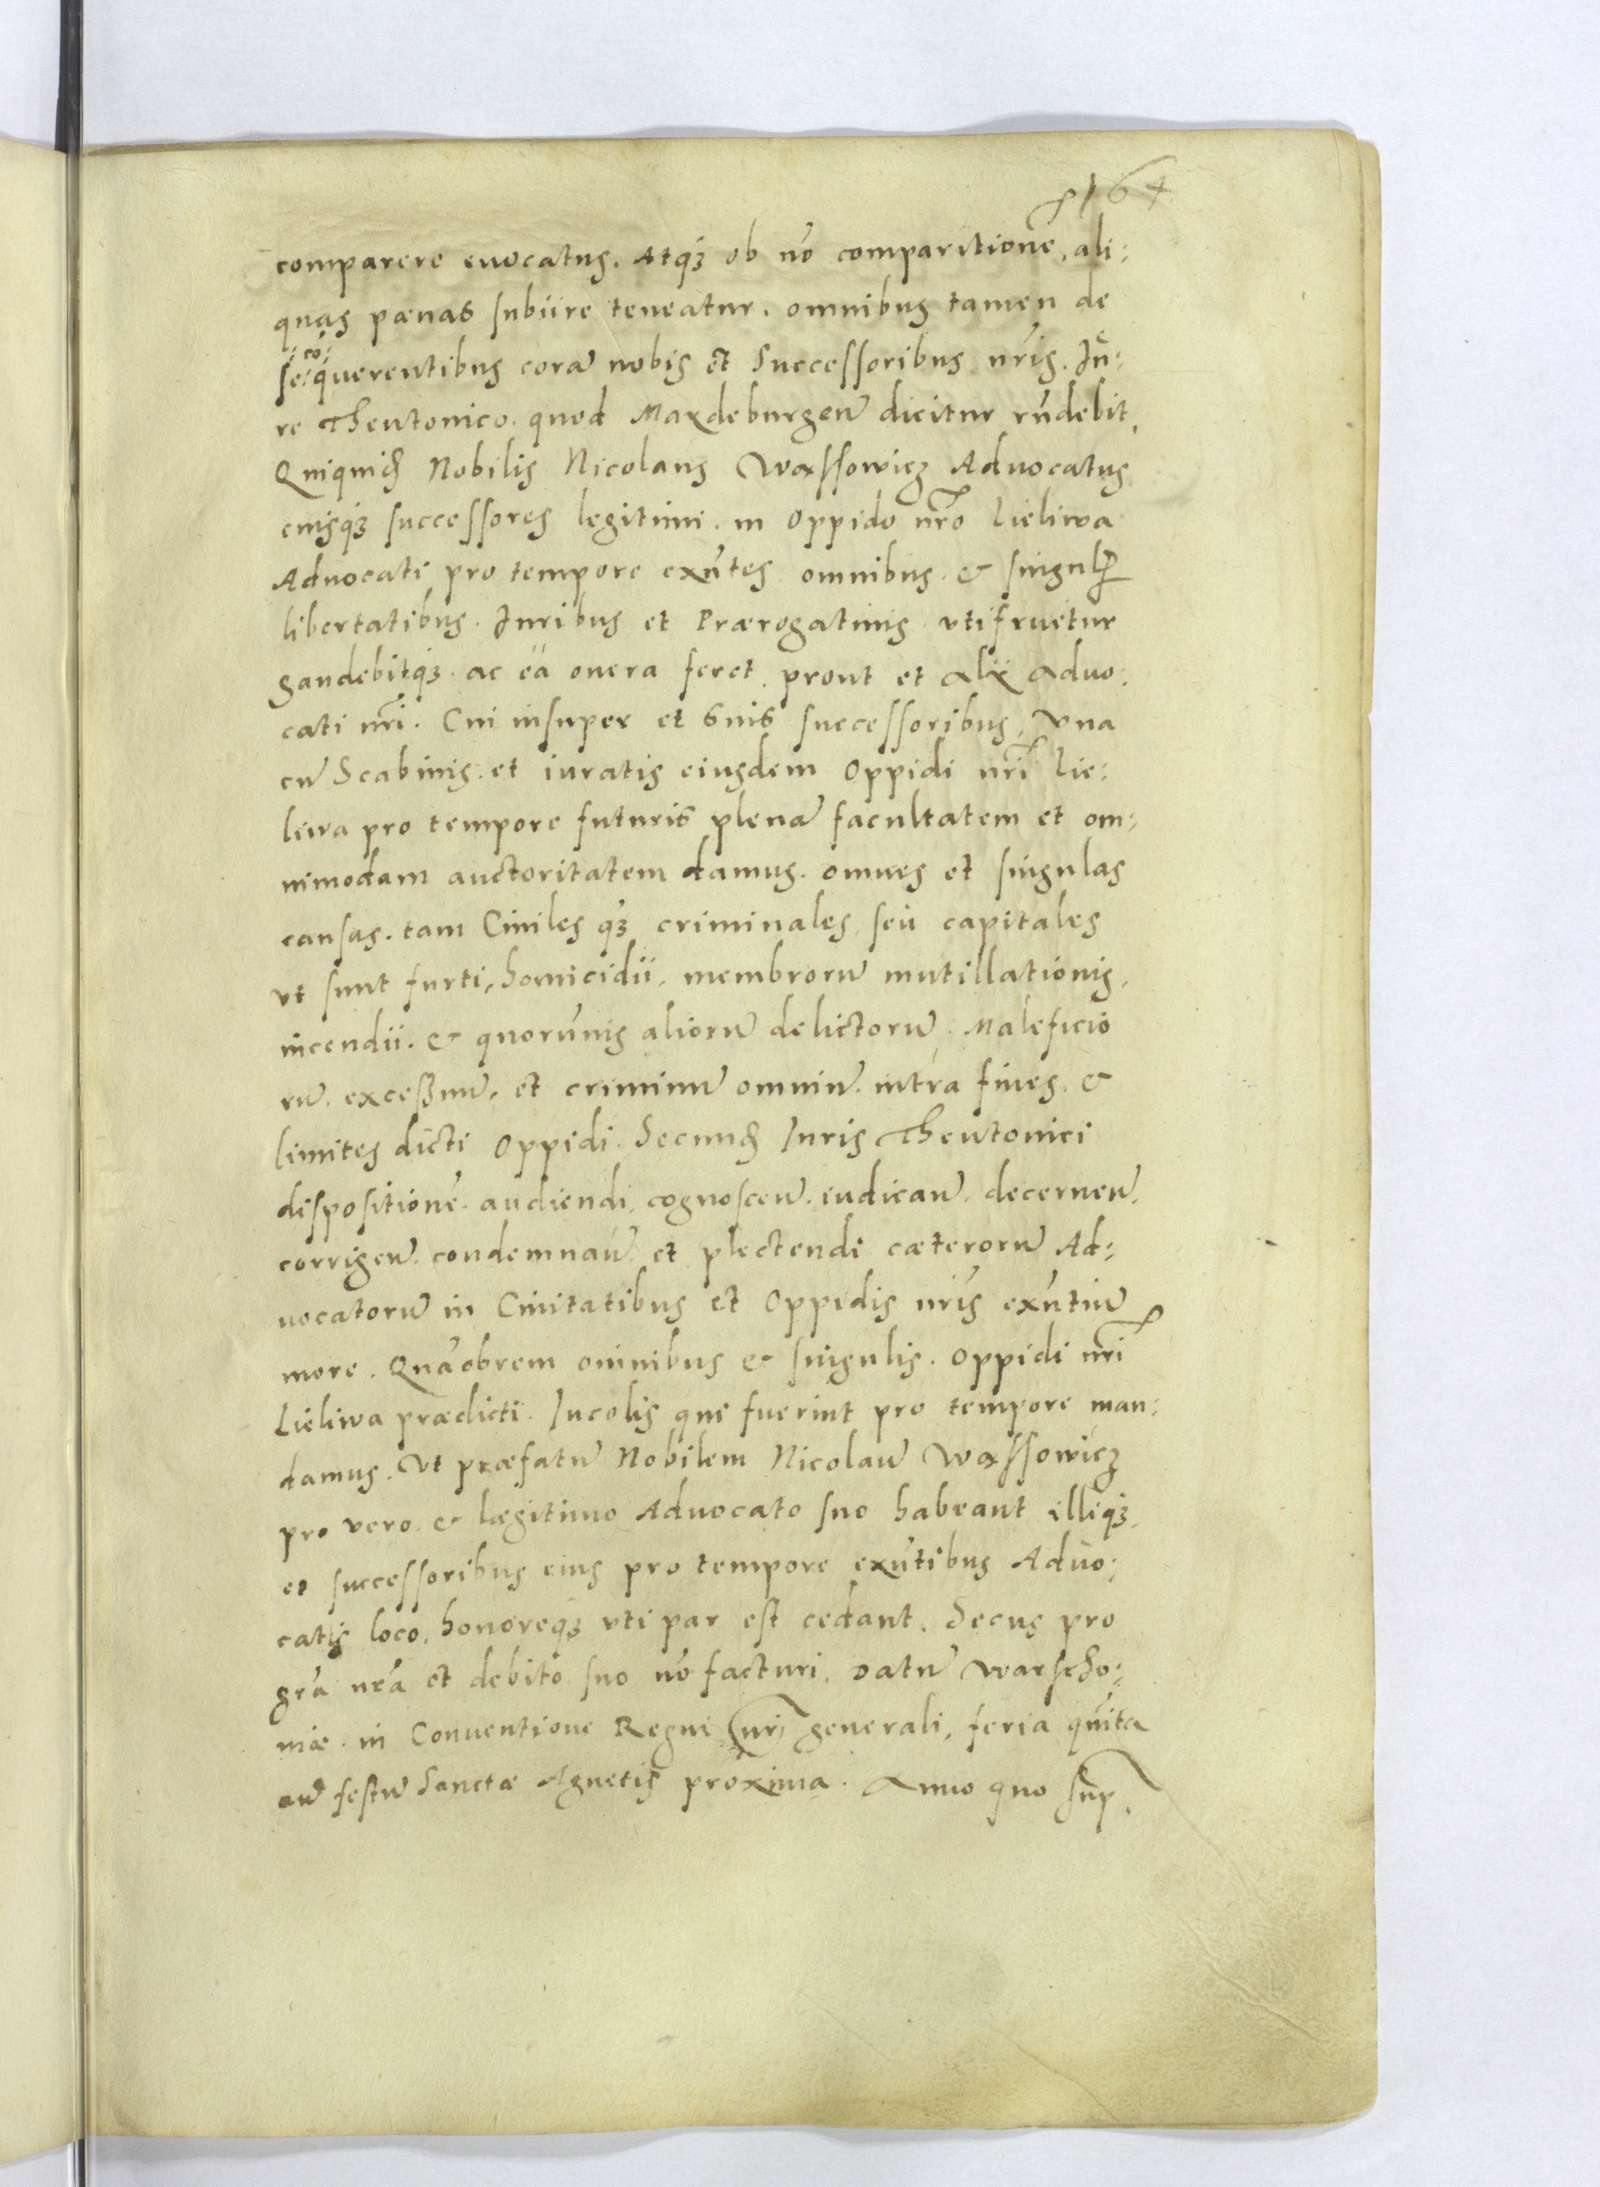 164
comparere euocatus. Atq3 ob nō comparitionē, ali:
quas pœnas subiire teneatur. omnibus tamen de
se: co: querentibus corā nobis et Successoribus nr̄is. Iu:
re Theutonico. quod Maxdeburgeñ dicitur rn̄debit.
Quiquid̄ Nobilis Nicolaus Wassowicz Aduocatus
eiusq3 successores legitimi. in Oppido nr̄o Lieliwa
Aduocati pro tempore exn̄tes omnibus. & singul
libertatibus. Iuribus et Prærogatiuis utifruetur
gaudebitq3. ac ea onera feret. prout et Alij Aduo:
cati nr̄i. Cui insuper et Suis successoribus, Vna
cū Scabinis. et iuratis eiusdem Oppidi nr̄i Lie:
liwa pro tempore futuris plenā facultatem et om:
nimodam auctoritatem damus. omnes et singulas
causas. tam Ciuiles q3 criminales, seu capitales
vt sunt furti, homicidii, membrorū mutillationis,
incendii. & quorūuis aliorū delictorū. Maleficio
rū. excessuū, et criminū omniū. intra fines. &
limites dicti Oppidi. Secund̄ Iuris Theutonici
dispositionē. audiendi, cognosceñ. iudicañ. decerneñ.
corrigeñ. condemnañ. et plectendi cæterorū Ad:
uocatorū in Ciuitatibus et Oppidis nr̄is exn̄tiū
more. Quāobrem omnibus & singulis. Oppidi nr̄i
Lieliwa prædicti. Incolis qui fuerint pro tempore man:
damus. Vt præfatū Nobilem Nicolaū Wassowicz
pro vero. & lægitimo Aduocato suo habeant illiq3.
et successoribus eius pro tempore exn̄tibus Aduo:
catis loco, honoreq3 vti par est cedant. Secus pro
gr̄a nr̄a et debito suo nō facturi. Datū Warscho:
uiæ. in Conuentione Regni nr̄i generali, feria qūita
añ festū Sanctæ Agnetis proxima. Anno quo sup.